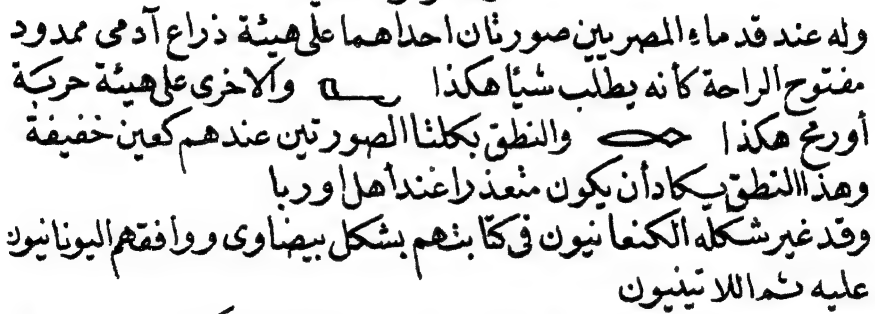 وله عند قدماء المصريين صورتان احداهما على هيئة ذراع آدمى ممدود
مفتوح الراحة كأنه يطلب شيأ هكذا والاخرى على هيئة حربة
أورمح هكذا والنطق بكلتا الصورتين عندهم كعين خفيفة
وهذا النطق يكاد أن يكون متعذرا عند أهل اوربا
وقد غير شكله الكنعانيون فى كتابتهم بشكل بيضاوى ووافقهم اليونانيون
عليه ثم اللاتينيون